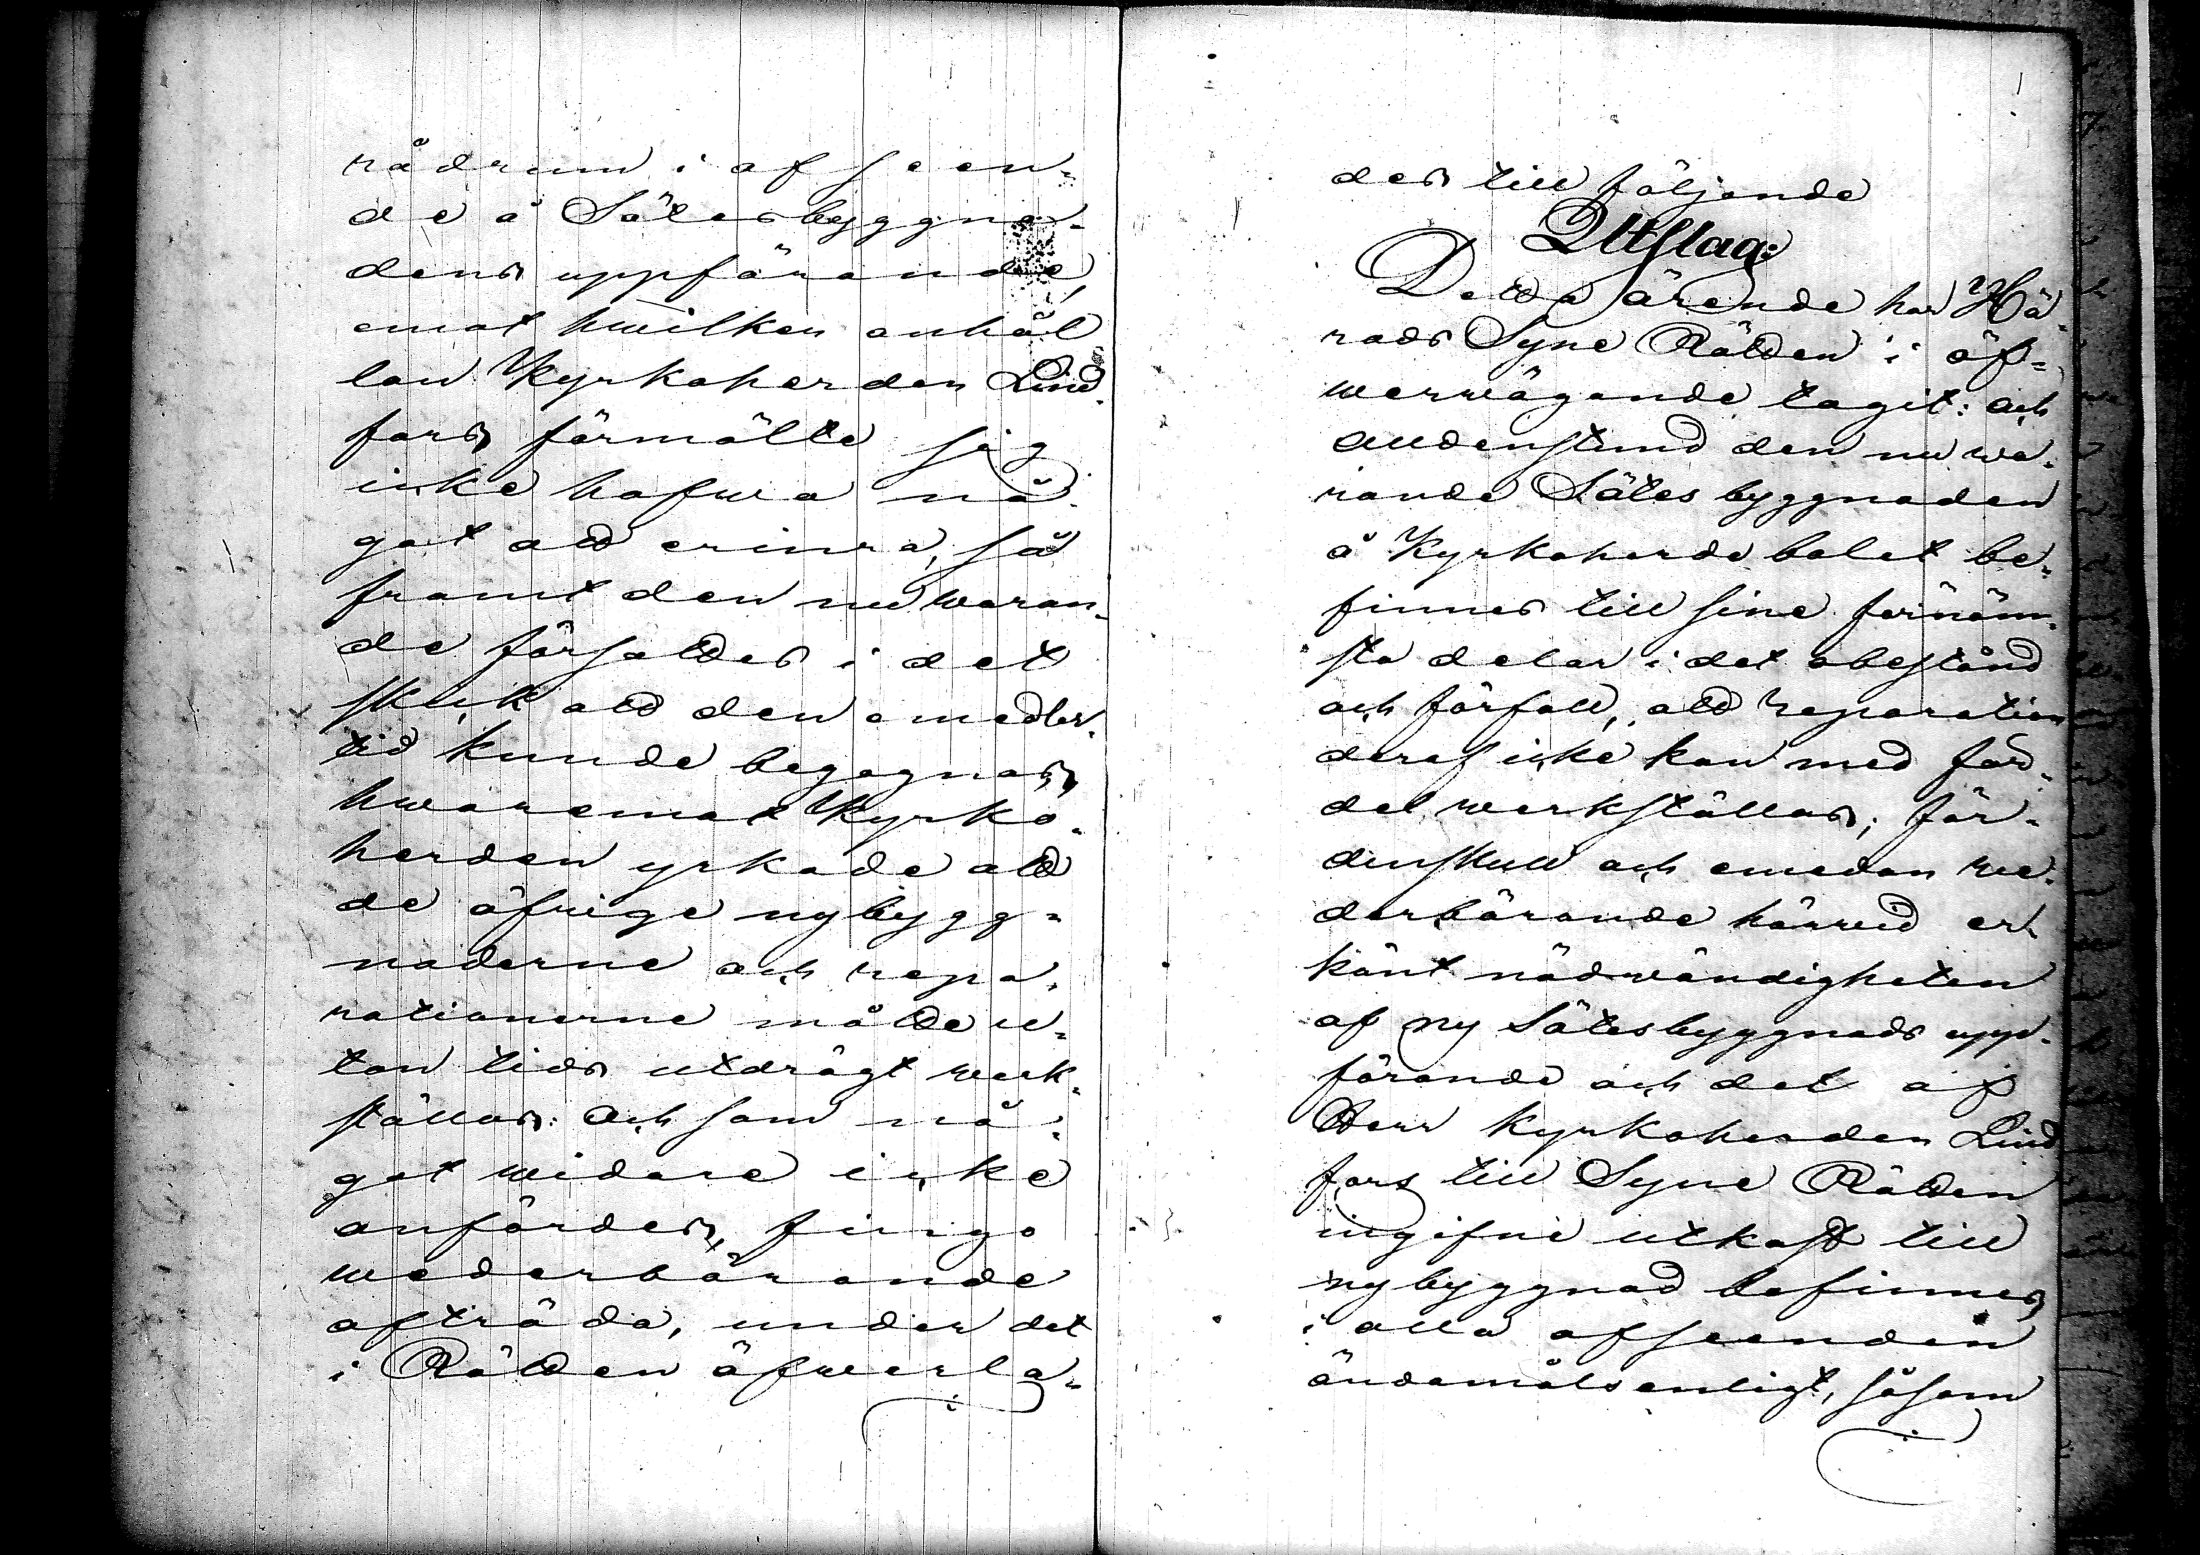 rådrum i afseen-
de å Sätesbyggna-
dens uppförande,
emot hwilken anhål
lan Kyrkoherden Lind-
fors förmälte sig
icke hafwa nå-
got att erinra, så
framt den nu waran-
de försattes i det
skick att den emedler-
tid kunde begagnas,
hwaremot Kyrko-
herden yrkade att
de öfrige nybygg-
naderne och repa-
rationerne måtte u-
tan tids utdrägt werk-
ställas: Och som nå-
got widare icke
anfördes, fingo
wederbörande
afträda, under det
i Rätten öfwerla-
des till följande
Utslag:
Detta ärende har Hä-
rads Syne Rätten i öf-
werwägande tagit: och
alldenstund den nu wa-
rande Sätes byggnaden
å Kyrkoherde bolet be-
finnes till sine förnäm-
sta delar i det obestånd
och förfall, att reparation
deraf icke kan med för-
del werkställas; för-
denskull och emedan we-
derbörande härwid er-
känt nödwändigheten
af ny Sätesbyggnads upp-
förande och det af
Herr Kyrkoherden Lind
fors till Syne Rätten
ingifne utkast till
nybyggnad befinnes
i alla afseenden
ändamålsenligt, såsom